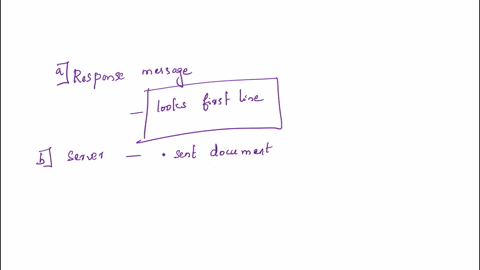 a] Response message
— looks first line
b] Server — • sent document